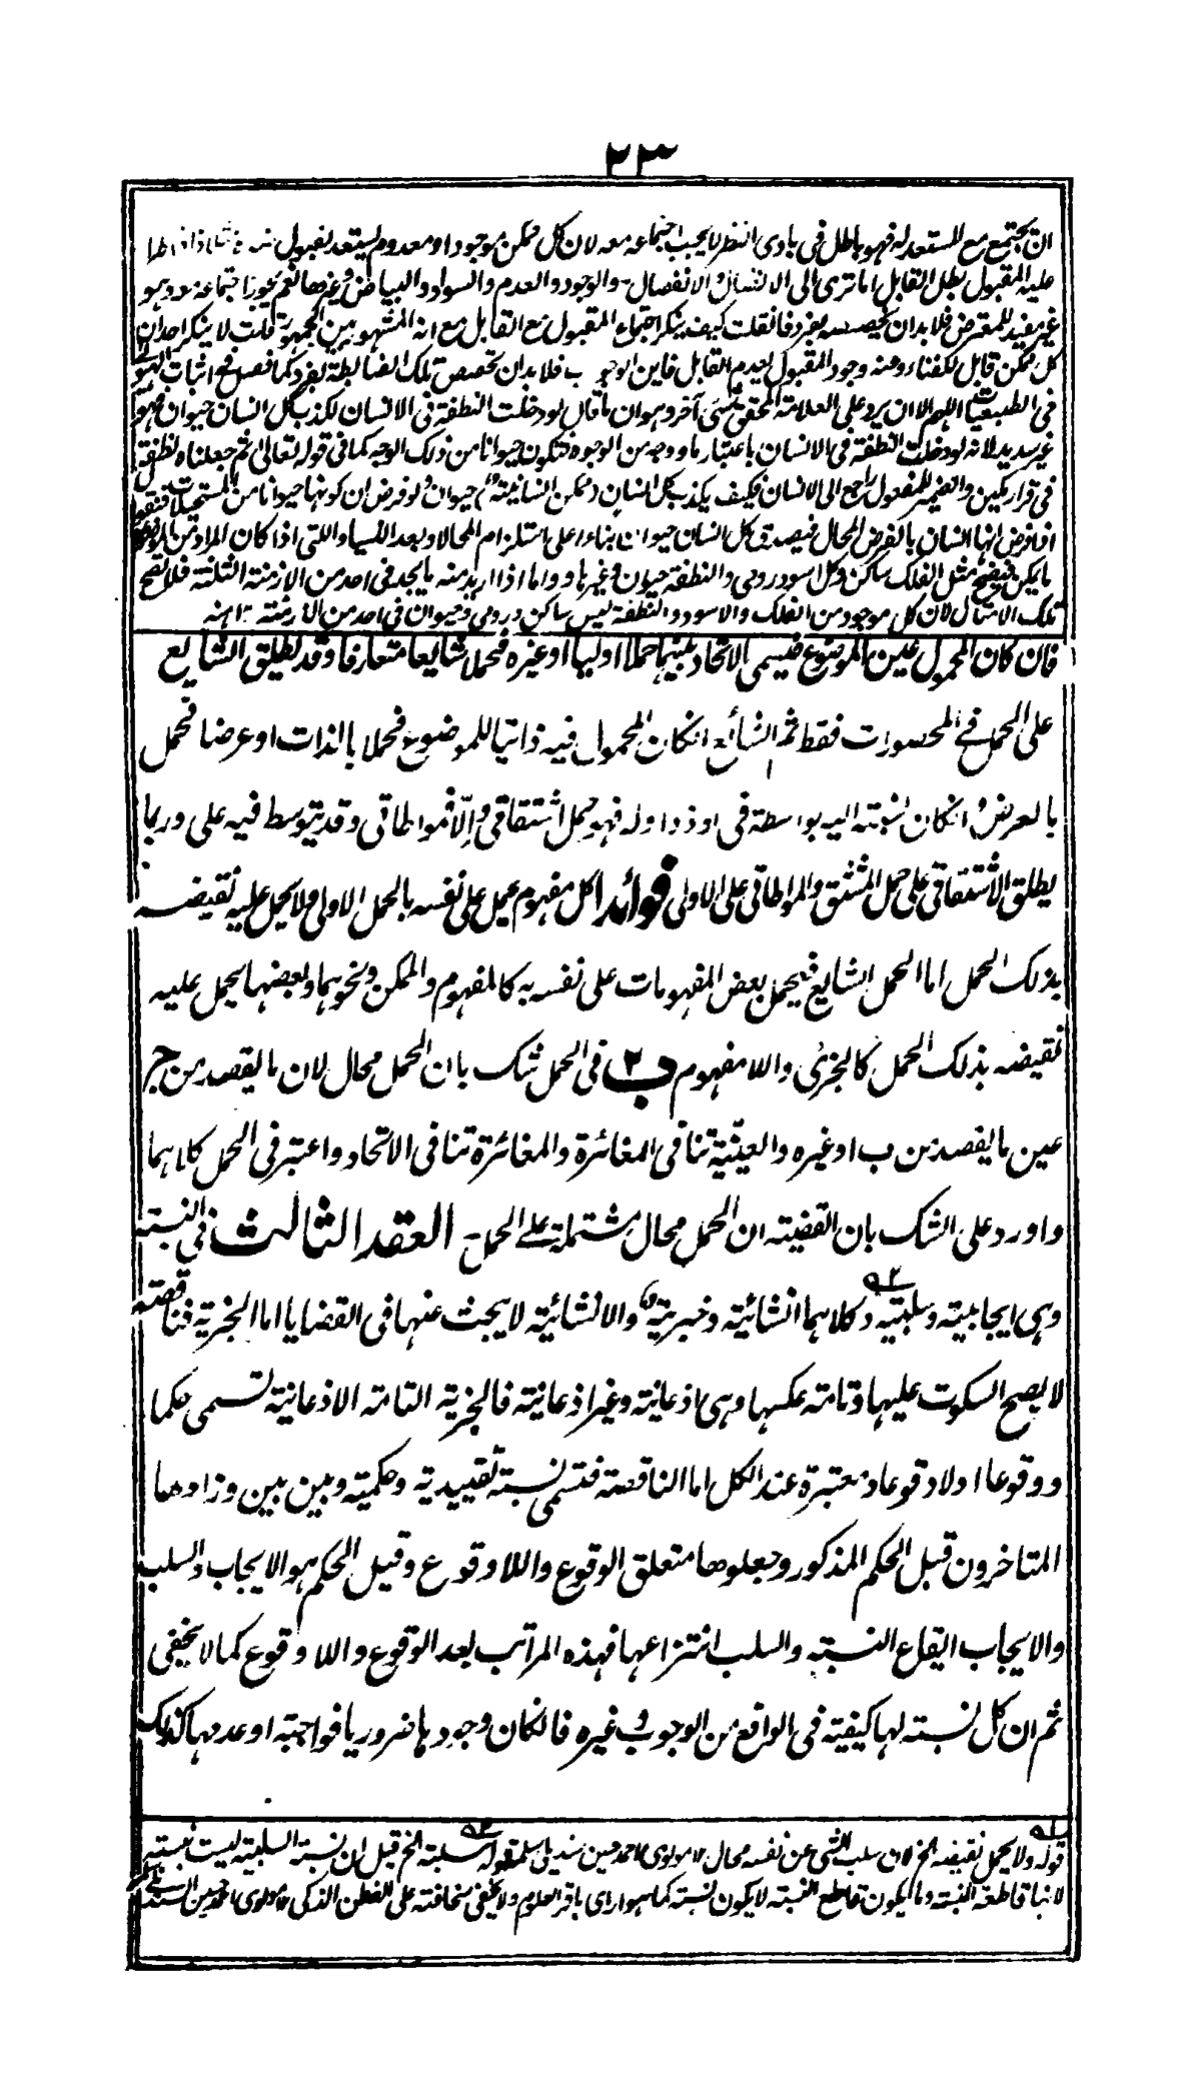 ٢٣
ان يجتمع مع المستعد له فهو باطل فى بادى النظر لا يجب اجتماعه معه لان كل ممكن موجود او معدوم يستعد لقبول
عليه المقبول بطل القابل اما ترى الى الاتصال والانفصال والوجود والعدم والسواد والبياض وغيرها نعم يجوز اجتماعه معه وهو
غير مفيد للمعترض فلا بدان يخصصه بفرد فانقلت كيف ينكر اجتماع المقبول مع القابل مع انه المشهور بين الجمهور قلت لا ينكر احدان
كل ممكن قابل لكفنا روعنه وجود المقبول بعدم القابل فاين الوجوب فلا بدان تخصص تلك الضابطة بفرد كما فصل فى اثبات الهيولى
فى الطبيعيات اللهم الا ان يرد على العلامة المحقق بشئ آخر وهو ان ما قال لو دخلت النطفة فى الانسان لكذب كل انسان حيوان فهو
غير سديد لانه لو دخلت النطفة فى الانسان باعتبار ما ووجه من الوجوه فتكون حيوانا من ذلك الوجه كما فى قوله تعالى ثم جعلناه نطفة
فى قرار مكين والضمير للمفعول راجع الى الانسان فكيف يكذب كل انسان حيوان ولو فرض ان كونها حيوانا من المستحيلات فنقول
اذا فرض انها انسان بالفرض المحال فيصدق كل انسان حيوان بناء على استلزام المحالا وبعد اللتيا واللتى اذا كان المراد من الموضوع
ما يمكن فيصح مثل الفلك ساكن وكل اسود رومى والنطفة حيوان وغيرها واما اذا اريد منه ما يجد فى احد من الازمنة الثلثة فلا تصح
تلك الامثال لان كل موجود من الفلك والاسود والنطفة ليس ساكن ورومى وحيوان فى احد من الازمنة ١٢ منه
فان كان المحمول عين الموضوع فيسمى الاتحاد بينهما حملا اوليا او غيره فحملا شايعا متعارفا وقد يطلق الشايع
على الحمل فے المحصورات فقط ثم الشائع انكان المحمول فيه ذاتيا للموضوع فحملا بالذات او عرضا فحمل
بالعرض وانكان نسبته اليه بواسطة فى او ذو او له فهو حمل اشتقاقى والّا فمواطاقى وقد يتوسط فيه على وربما
يطلق الاشتقاقى على حمل المشتق والمواطاقى على الاولى فوائد ا كل مفهوم يحمل على نفسه بالحمل الاولى ولا يحمل عليه نقيضه
بذلك الحمل اما الحمل الشايع فيحمل بعض المفهومات على نفسه به كالمفهوم والممكن ونحوهما وبعضها يحمل عليه
نقيضه بذلك الحمل كالجزئى واللا مفهوم ب ٢ فى الحمل شك بان الحمل محال لان ما يقصد من ج
عين ما يقصد من ب او غيره والعينّية تنافى المغائرة والمغائرة تنافى الاتحاد واعتبر فى الحمل كلاهما
واورد على الشك بان القضية ان الحمل محال مشتملة على الحمل العقد الثالث فى النسبة
وهى ايجابية وسلبية ٩٢ وكلاهما انشائية وخبرية والانشائية لا يبحث عنها فى القضايا اما الخبرية فناقصة
لا يصح السكوت عليها وتامة عكسها وهى اذعانية وغير اذعانية فالخبرية التامة الاذعانية تسمى حكما
ووقوعا اولا وقوعا ومعتبرة عند الكل اما الناقصة فتسمى نسبة تقييدية وحكمية وبين بين وزادها
المتاخرون قبل الحكم المذكور وجعلوها متعلق الوقوع واللا وقوع وقيل الحكم هو الايجاب والسلب
والايجاب ايقاع النسبة والسلب انتزاعها فهذه المراتب بعد الوقوع واللا وقوع كما لا يخفى
ثم ان كل نسبة لها كيفية فى الواقع من الوجوب وغيره فانكان وجودها ضروريا فواجبة او عدمها كذلك
٩١ قوله ولا يحمل نقيضه الخ لان سلب الشئ عن نفسه محال ١٢ مولوى محمد حسين سنديلى سلمه ٩٢ قوله سلبية الخ قيل ان نسبة السلبية ليست بنسبة
لانها قاطعة النسبة وما يكون قاطع النسبة لا يكون نسبة كما هو راى باقر العلوم ولا يخفى سخافته على الفطن الذكى ١٢ مولوى محمد حسين